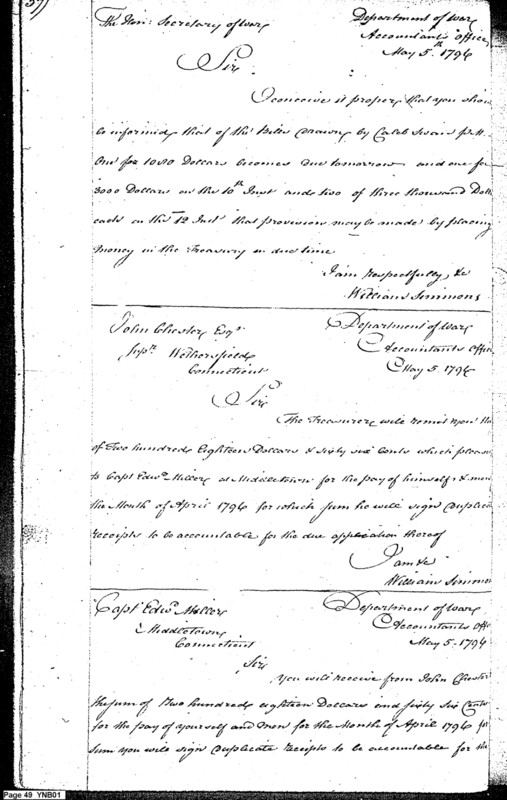 37)
The Hon: Secretary of War
Department of War
Accountants Office
May 5.th 1794
Sir
I conceive it proper that you shou
be informed, that of the Bills drawn by Caleb Swan P.M.
One for 1080 Dollars becomes due tomorrow and one for
3000 Dollars on the 10th Inst and two of three thousand Doll
each on the 12 Inst that provision may be made by placing
money in the Treasury in due time
I am respectfully, &c
William Simmons
John Chester Esqr.
Supr. Wethersfield
Connecticut
Department of War
Accountants Office
May 5. 1794
Sir
The Treasurer will remit you the
of Two hundred Eighteen Dollars & sixty six Cents which please
to Capt Edwd. Miller at Middletown for the pay of himself & men
the Month of April 1794 for which sum he will sign duplicate
receipts to be accountable for the due application thereof
I am &c
William Simmon
Capt Edwd. Miller
Middletown
Connecticut
Department of War
Accountants Offi
May 5. 1794
Sir
You will receive from John Chester
the sum of two hundred eighteen Dollars and sixty six Cents
for the pay of yourself and men for the Month of April 1794 for
sum you will sign duplicate receipts to be accountable for the
Page 49 YNB01